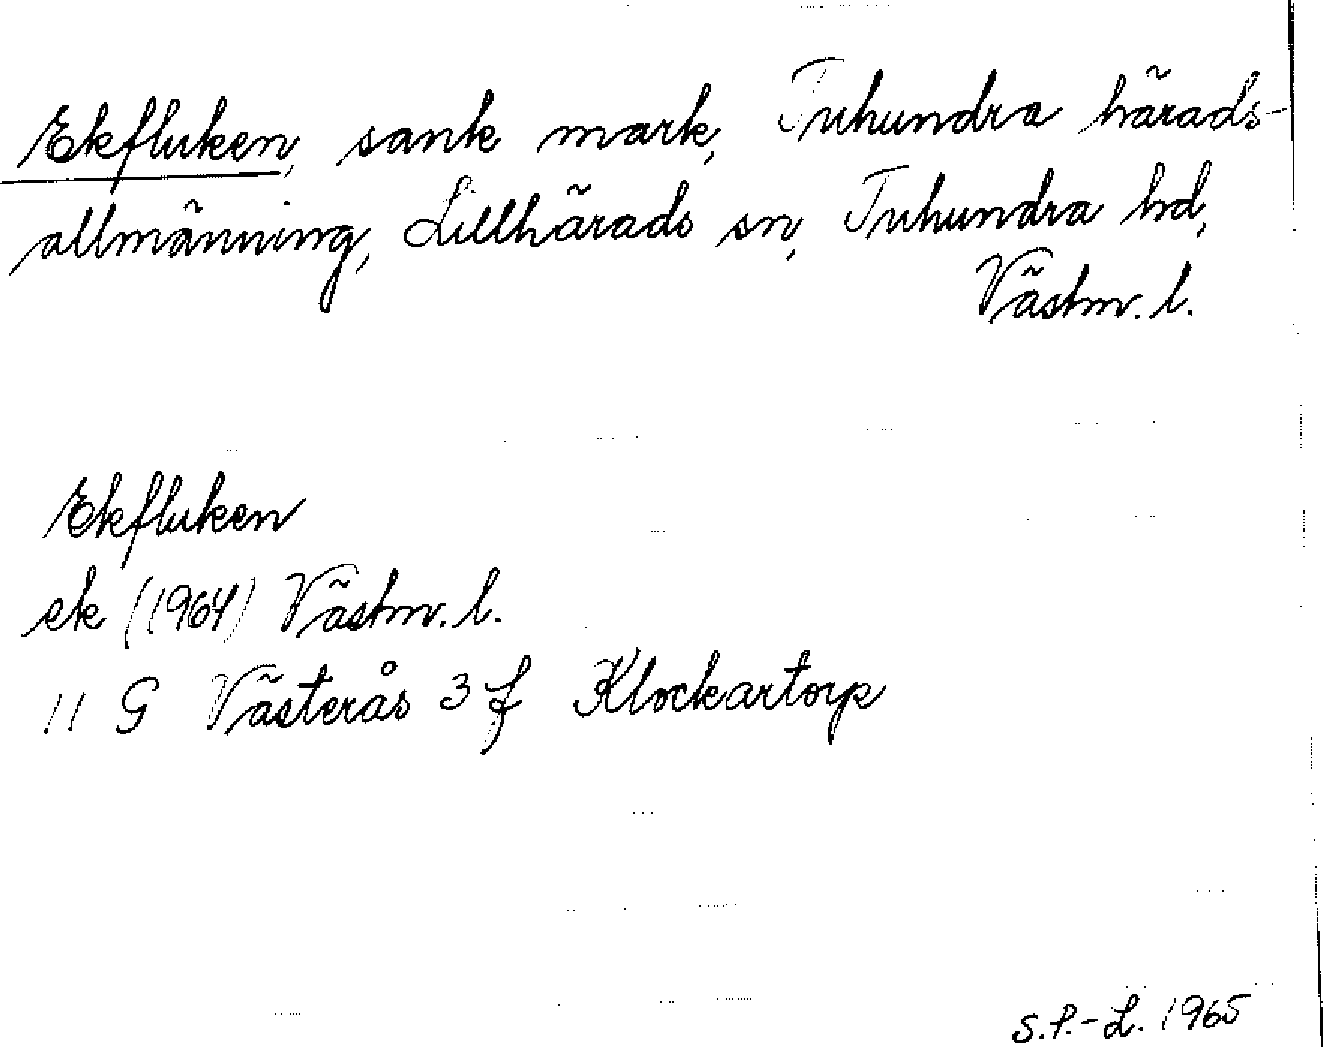 Ekfluken, sank mark, Tuhundra härads-
allmänning, Lillhärads sn, Tuhundra hd,
Västm. l.
Ekfluken
ek (1964) Västm. l.
11 G Västerås 3 f Klockartorp
S.P.-L. 1965